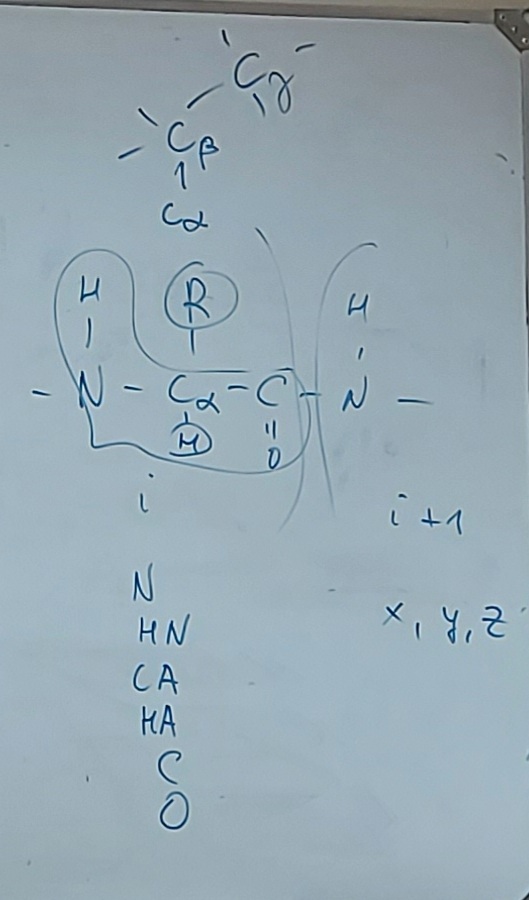 Cγ
Cβ
Cα
H R H
- N - Cα - C - N -
H O
i i+1
N
HN x, y, z
CA
HA
C
O